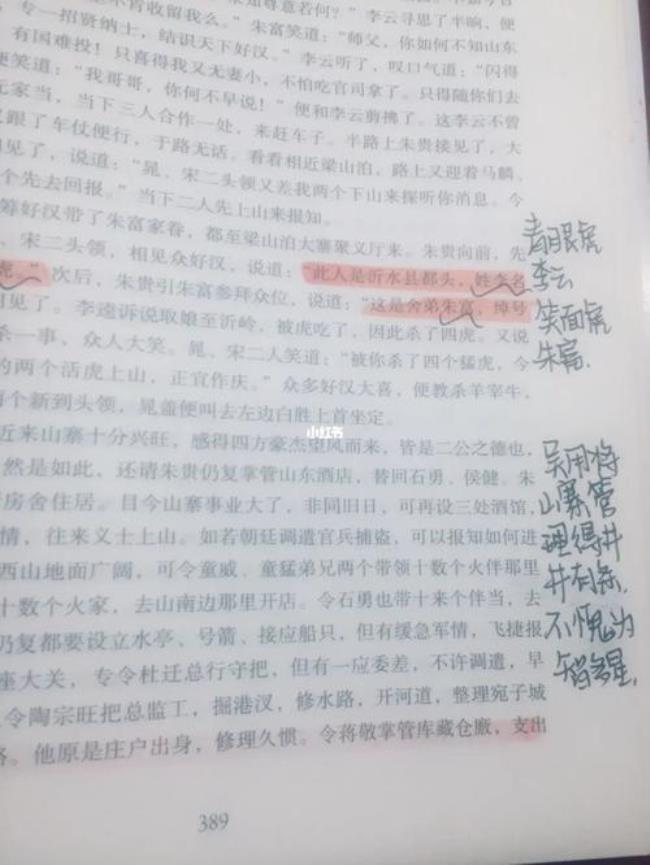 专一招贤纳士，结识天下好汉。”朱富笑道：“师父，你如何不知山东
有国难投！只喜得我又无妻小，不怕吃官司拿了。只得随你们去
笑道：“我哥哥，你何不早说！”便和李云剪拂了。这李云不曾
家当，当下三人合作一处，来赶车子。半路上朱贵接见了，大
跟了车仗便行，于路无话。看看相近梁山泊，路上又迎着马麟、
见了，说道：“晁、宋二头领又差我两个下山来探听你消息。今
个先去回报。”当下二人先上山来报知。
筹好汉带了朱富家眷，都至梁山泊大寨聚义厅来。朱贵向前，先
、宋二头领，相见众好汉，说道：“此人是沂水县都头，姓李名
虎。”次后，朱贵引朱富参拜众位，说道：“这是舍弟朱富，绰号
见了。李逵诉说取娘至沂岭，被虎吃了，因此杀了四虎。又说
杀一事，众人大笑。晁、宋二人笑道：“被你杀了四个猛虎，今
的两个活虎上山，正宜作庆。”众多好汉大喜，便教杀羊宰牛，
两个新到头领，晁盖便叫去左边白胜上首坐定。
近来山寨十分兴旺，感得四方豪杰望风而来，皆是二公之德也，
然是如此，还请朱贵仍复掌管山东酒店，替回石勇、侯健。朱
房舍住居。目今山寨事业大了，非同旧日，可再设三处酒馆，
情，往来义士上山。如若朝廷调遣官兵捕盗，可以报知如何进
西山地面广阔，可令童威、童猛弟兄两个带领十数个火伴那里
十数个火家，去山南边那里开店。令石勇也带十来个伴当，去
仍复都要设立水亭、号箭、接应船只，但有缓急军情，飞捷报
座大关，专令杜迁总行守把，但有一应委差，不许调遣，早
令陶宗旺把总监工，掘港汊，修水路，开河道，整理宛子城
路。他原是庄户出身，修理久惯。令蒋敬掌管库藏仓廒，支出
389
青眼虎
李云
笑面虎
朱富.
吴用将
山寨管
理得井
井有条.
不愧为
智多星.
小红书